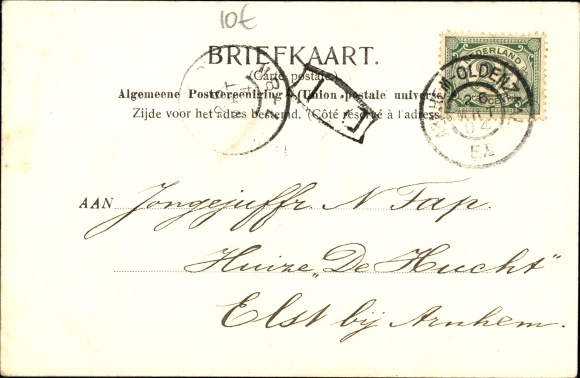 10€
BRIEFKAART.
(Carte postale)
Algemeene Postvereeniging (Union postale univers
Zijde voor het adres bestemd. (Côté réservé à l'adress
NEDERLAND
OLDENZ
04
AAN Jongejuffr. N Tap.
Huize „De Hucht"
Elst bij Arnhem.